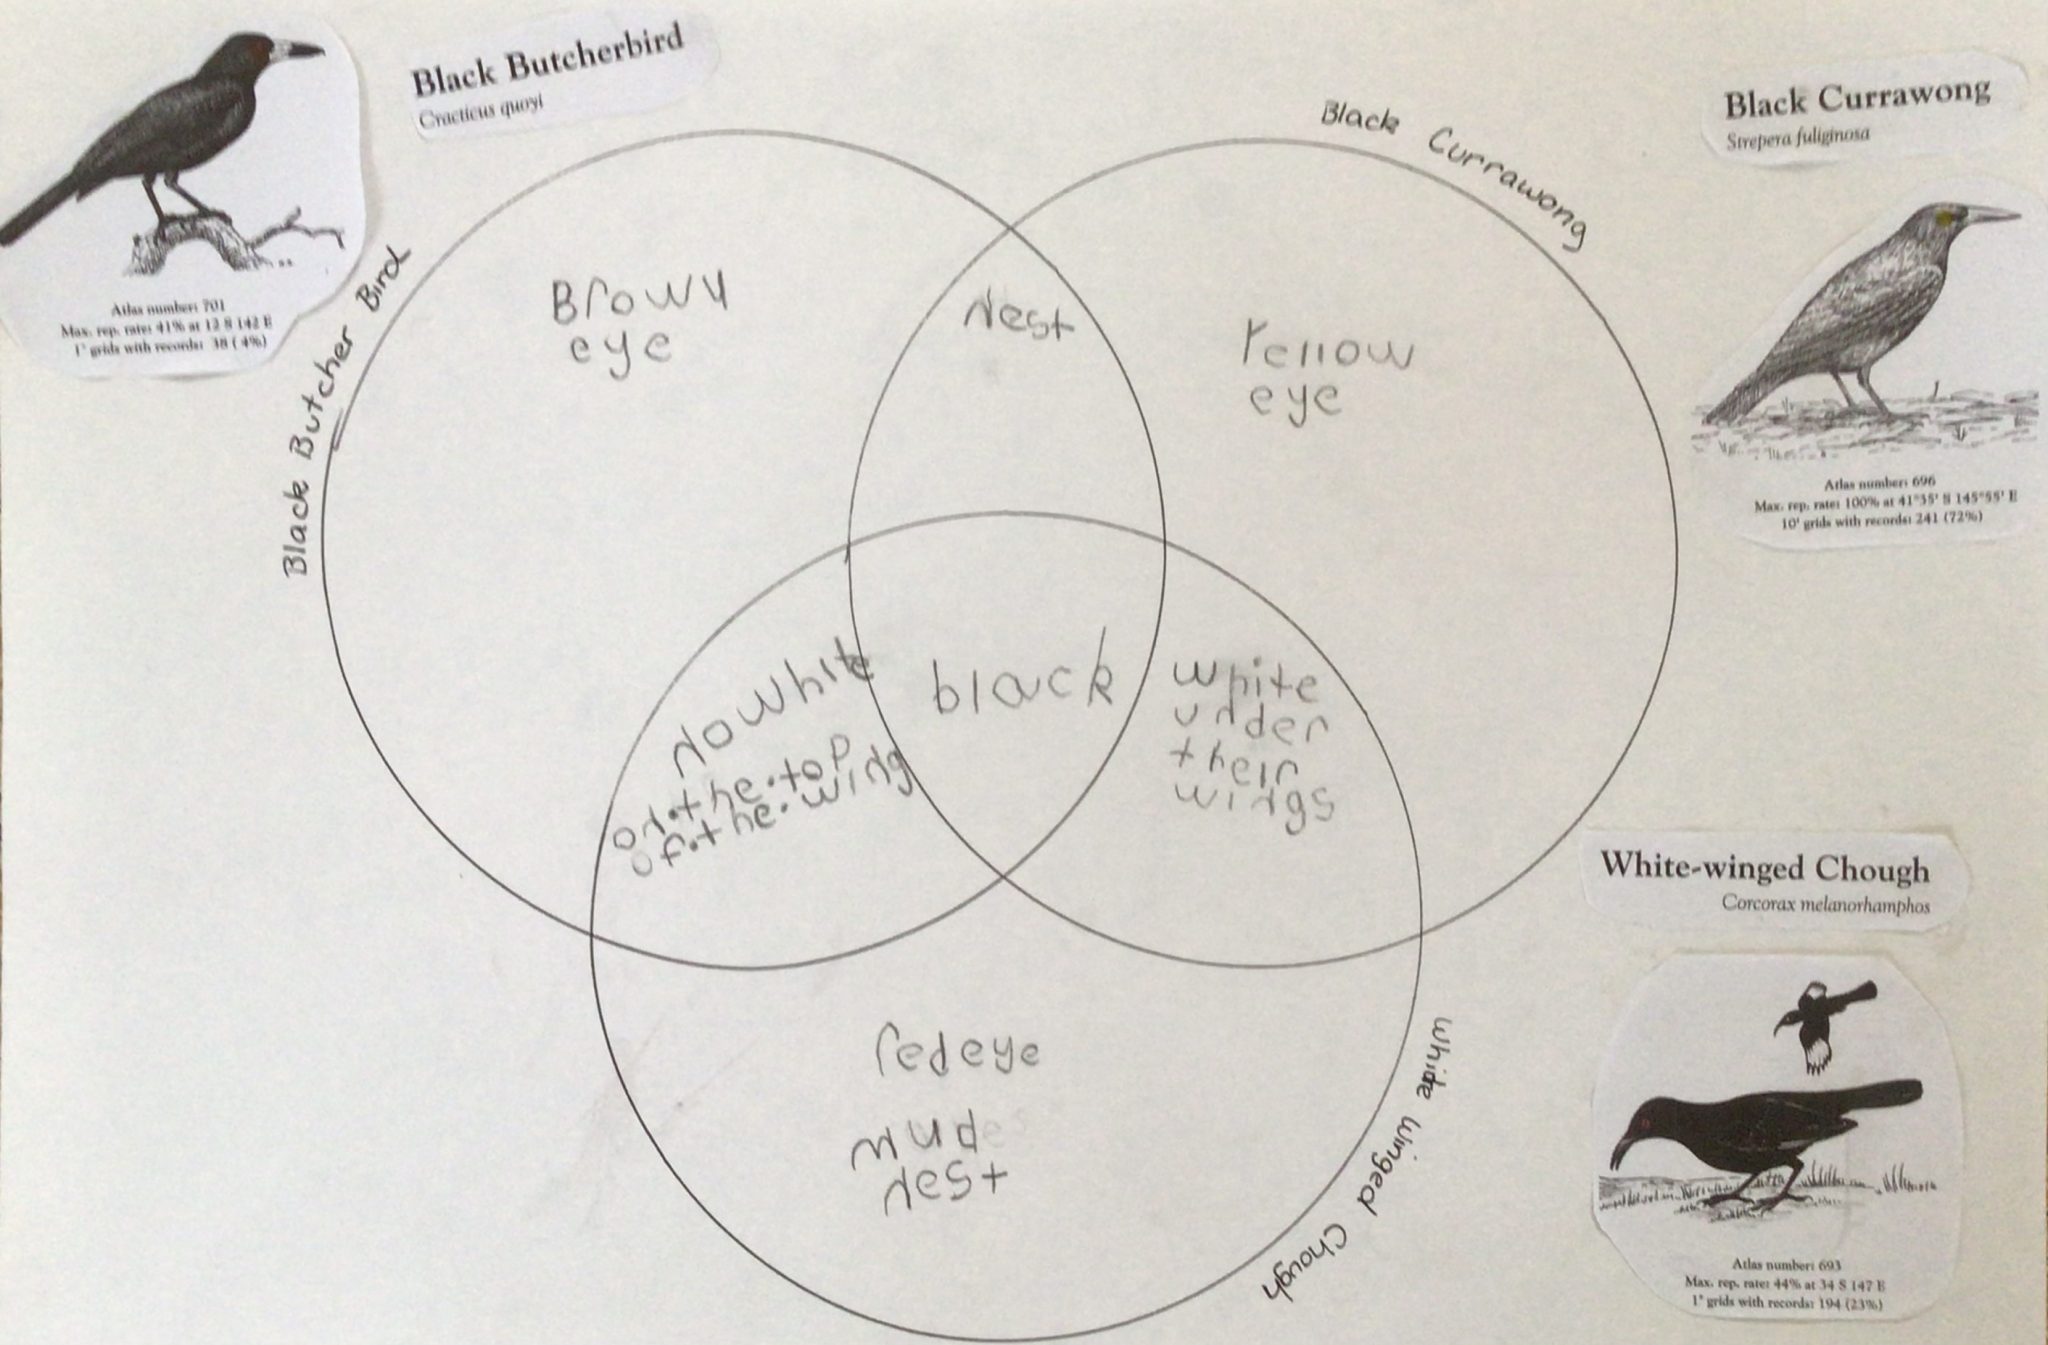 Black Butcherbird
Cracticus quoyi
Atlas number: 701
Max. rep. rate: 41% at 12 S 142 E
1° grids with records: 38 (4%)
Black Butcher Bird
Black Currawong
Black Currawong
Strepera fuliginosa
Atlas number: 696
Max. rep. rate: 100% at 41°35' S 145°55' E
10' grids with records: 241 (72%)
Brown
eye
nest
Yellow
eye
no white
on.the.top
of.the.wing
black
white
under
their
wings
red eye
mud
nest
White Winged Chough
White-winged Chough
Corcorax melanorhamphos
Atlas number: 693
Max. rep. rate: 44% at 34 S 147 E
1° grids with records: 194 (23%)